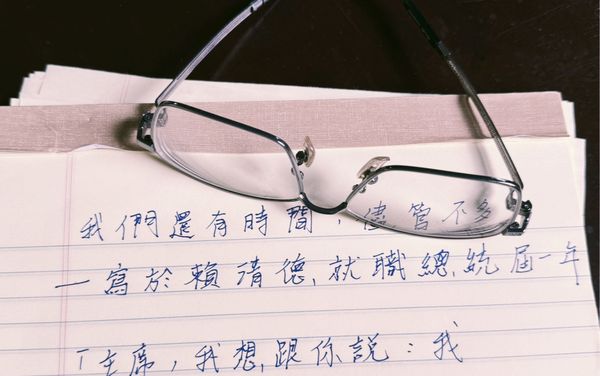 我們還有時間，儘管不多
—寫於賴清德就職總統屆一年
「主席，我想跟你說：我